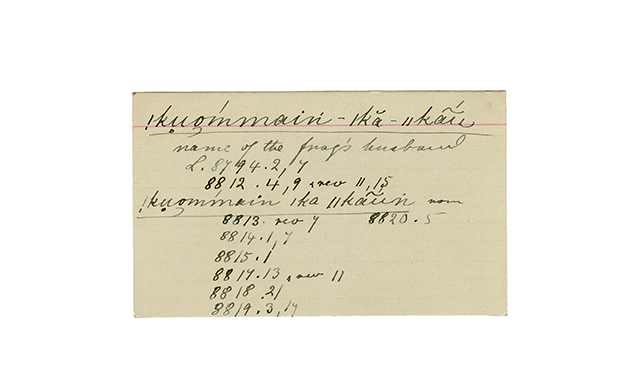 !kụọ́mmaiń - ǀkă - ǁkā́ũ
name of the frog's husband
L. 8794. 2, 7
8812. 4, 9, rev 11, 15
!kụọḿmain ǀka ǁkā́ũń nom
8813. rev 7 8820. 5
8814. 1, 7
8815. 1
8817. 13, rev 11
8818. 21
8819. 3, 17